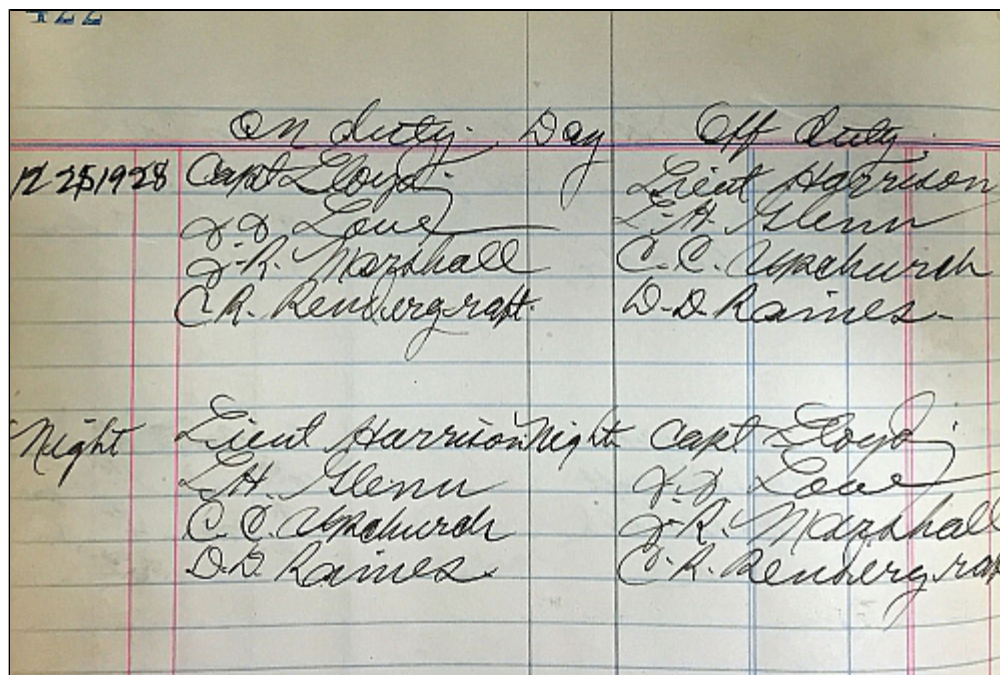 422
On duty. Day Off duty.
12 25 1928 Capt Lloyd. Lieut Harrison
J. J. Love L. H. Glenn
J. R. Marshall C. C. Upchurch
C. R. Rendergraft. D. D. Raines.
Night Lieut Harrison Night Capt Lloyd
L. H. Glenn J. J. Love
C. C. Upchurch J. R. Marshall
D. D. Raines. C. R. Rendergraf